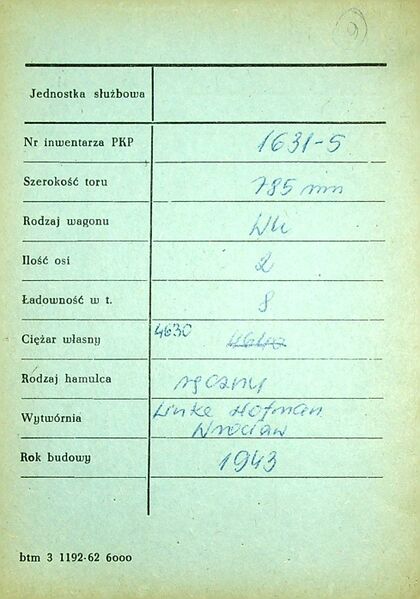 9
Jednostka służbowa
Nr inwentarza PKP 1631-5
Szerokość toru 785 mm
Rodzaj wagonu
Ilość osi 2
Ładowność w t. 8
Ciężar własny 4630 4640
Rodzaj hamulca ręczny
Wytwórnia Linke Hofman
Wrocław
Rok budowy 1943
btm 3 1192-62 6000